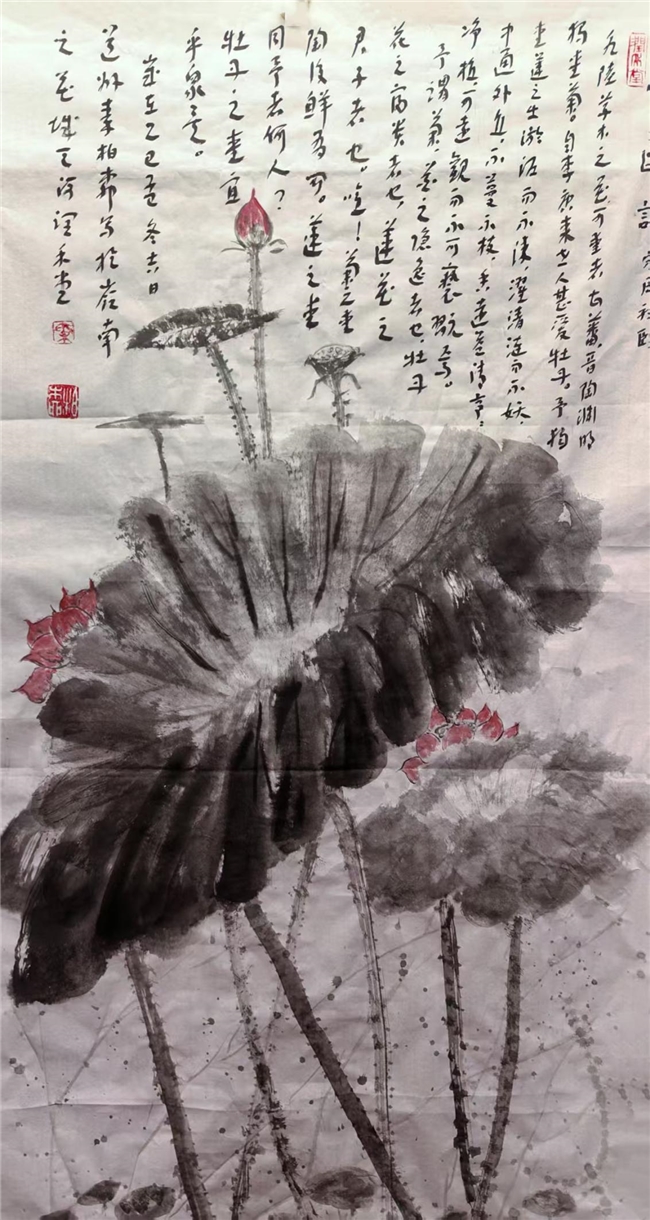 水陸草木之花可爱者甚蕃晋陶渊明
独爱菊自李唐来世人甚爱牡丹。予独
爱莲之出淤泥而不染,濯清涟而不妖,
中通外直,不蔓不枝,香远益清,亭亭
净植可远觀而不可亵玩焉。
予谓菊,花之隐逸者也,牡丹
花之富贵者也,蓮花之
君子者也。噫!菊之爱
陶後鲜有闻。蓮之爱
同予者何人?
牡丹之爱宜
乎众矣。
岁在乙巳孟冬
道州李柏霖写於岭南
之花城天河